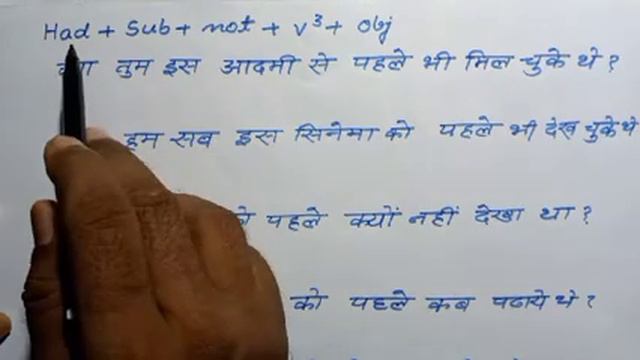 Had + Sub + not + v³ + Obj
तुम इस आदमी से पहले भी मिल चुके थे ?
हम सब इस सिनेमा को पहले भी देख चुके थे
पहले क्यों नहीं देखा था ?
को पहले कब पढाये थे ?